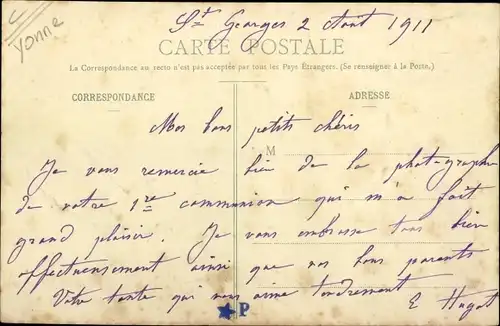 Yonne
St Georges 2 Aout 1911
CARTE POSTALE
La Correspondance au recto n'est pas acceptée par tous les Pays Étrangers. (Se renseigner à la Poste.)
CORRESPONDANCE
ADRESSE
M
Mes bons petits chéris
Je vous remercie bien de la photographie
de votre 1re communion qui m'a fait
grand plaisir. Je vous embrasse tous bien
affectueusement ainsi que vos bons parents
Votre tante qui vous aime tendrement
E Hugot
P